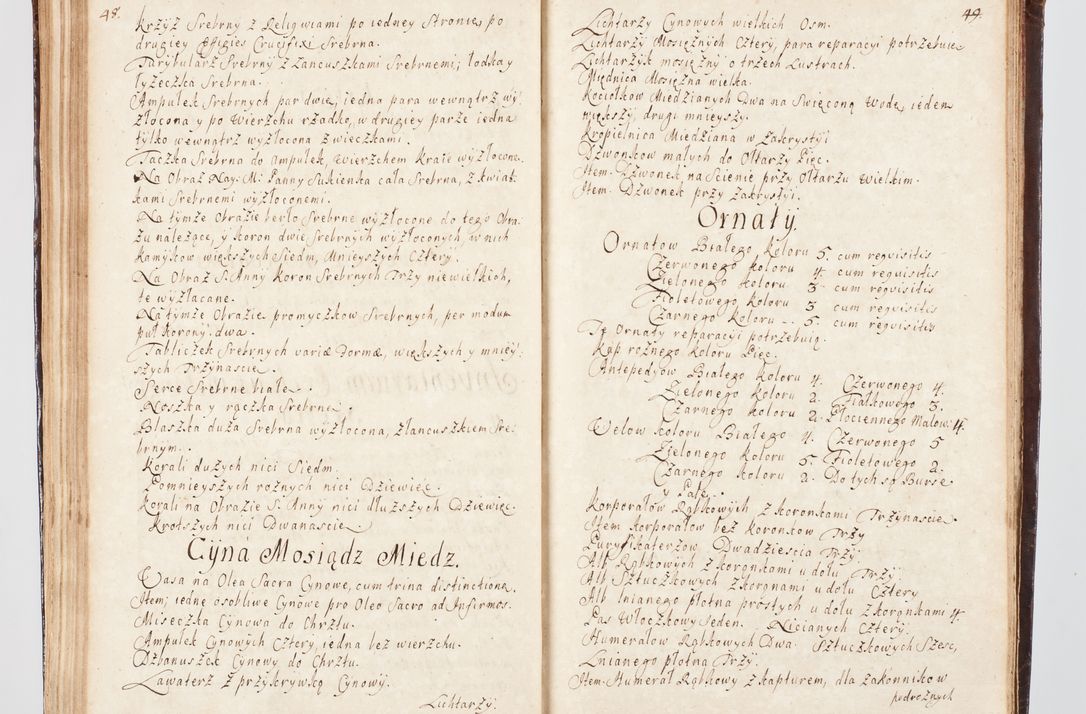 48.
Krzyż Srebrny z Reliqwiami po iedney Stronie, po
drugiey Effigies Crucifixi Srebrna.
Turybularz Srebrny z Łancuszkami Srebrnemi; łodka y
łyżeczka Srebrna.
Ampułek Srebrnych par dwie, iedna para wewnątrz wy
złocona y po wierzchu rzadko, w drugiey parze iedna
tylko wewnątrz wyzłocona z wieczkami.
Taczka Srebrna do Ampułek, wierzchem kraie wyzłocone.
Na Obraz Nay: M: Panny Sukienka cała Srebrna, z kwiat
kami Srebrnemi wyzłoconemi.
Na tymże Obrazie berło Srebrne wyzłocone do tego Obra
zu należące, y koron dwie Srebrnych wyzłoconych, w nich
kamykow większych Siedm, Mnieyszych Cztery.
Na Obraz S. Anny koron Srebrnych Trzy niewielkich,
te wyzłacane.
Na tymże Obrazie promyczkow Srebrnych, per modum
puł korony, dwa.
Tabliczek Srebrnych variæ Formæ, większych y mniey
szych Trzynascie.
Serce Srebrne białe.
Noszka y rączka Srebrne.
Blaszka duża Srebrna wyzłocona, z łancuszkiem Sre
brnym.
Korali dużych nici Siedm.
Pomnieyszych rożnych nici Dziewięc.
Korali na Obrazie S. Anny nici dłuższych Dziewięc.
Krotszych nici Dwanascie.
Cyna Mosiądz Miedz.
Wasa na Olea Sacra Cynowe, cum trina distinctione,
Item; iedne osobliwe Cynowe pro Oleo Sacro ad Infirmos.
Miseczka Cynowa do Chrztu.
Ampułek Cynowych Cztery, iedna bez wierzchu.
Dzbanuszek Cynowy do Chrztu.
Lawaterz z przykrywką Cynowy.
Lichtarzy.
49.
Lichtarzy Cynowych wielkich Osm.
Lichtarzy Mosiężnych Cztery, para reparacyi potrzebuie
Lichtarzyk mosiężny o trzech Lustrach.
Miednica Mosiężna wielka.
Kociołkow Miedzianych Dwa na Swięconą Wodę, ieden
większy, drugi mnieyszy.
Kropielnica Miedziana w Zakrystyi
Dzwonkow małych do Ołtarzy Pięc.
Item. Dzwonek, na Scienie przy Ołtarzu Wielkim.
Item. Dzwonek przy Zakrystyi.
Ornaty.
Ornatow Białego koloru 5. cum requisitis
Czerwonego koloru 4. cum requisitis
Zielonego koloru 3. cum requisitis
Fioletowego koloru 3. cum requisitis
Czarnego koloru -- 5. cum requisitis
Te Ornaty reparacyi potrzebuią.
Kap rożnego koloru Pięc.
Antepedyow Białego koloru 4. Czerwonego 4.
Zielonego koloru 2. Fiałkowego 3.
Czarnego koloru 2. Płociennego Malow: 4.
Welow koloru Białego 4. Czerwonego 5
Zielonego koloru 5. Fioletowego 2.
Czarnego koloru 2. Do tych są Burse
y Palle.
Korporałow Rąbkowych z koronkami Trzynascie.
Item korporałow bez koronkow Trzy
Puryfikaterzow Dwadziescia Trzy.
Alb Rąbkowych z koronkami u dołu Trzy
Alb Sztuczkowych z koronami u dołu Cztery
Alb lnianego płotna prostych u dołu z koronkami 4.
Pas Włoczkowy Ieden. Nicianych Cztery.
Humerałow Rąbkowych Dwa. Sztuczkowych Szesc,
Lnianego płotna Trzy.
Item. Humerał Rąbkowy z kapturem, dla zakonnikow
podrożnych